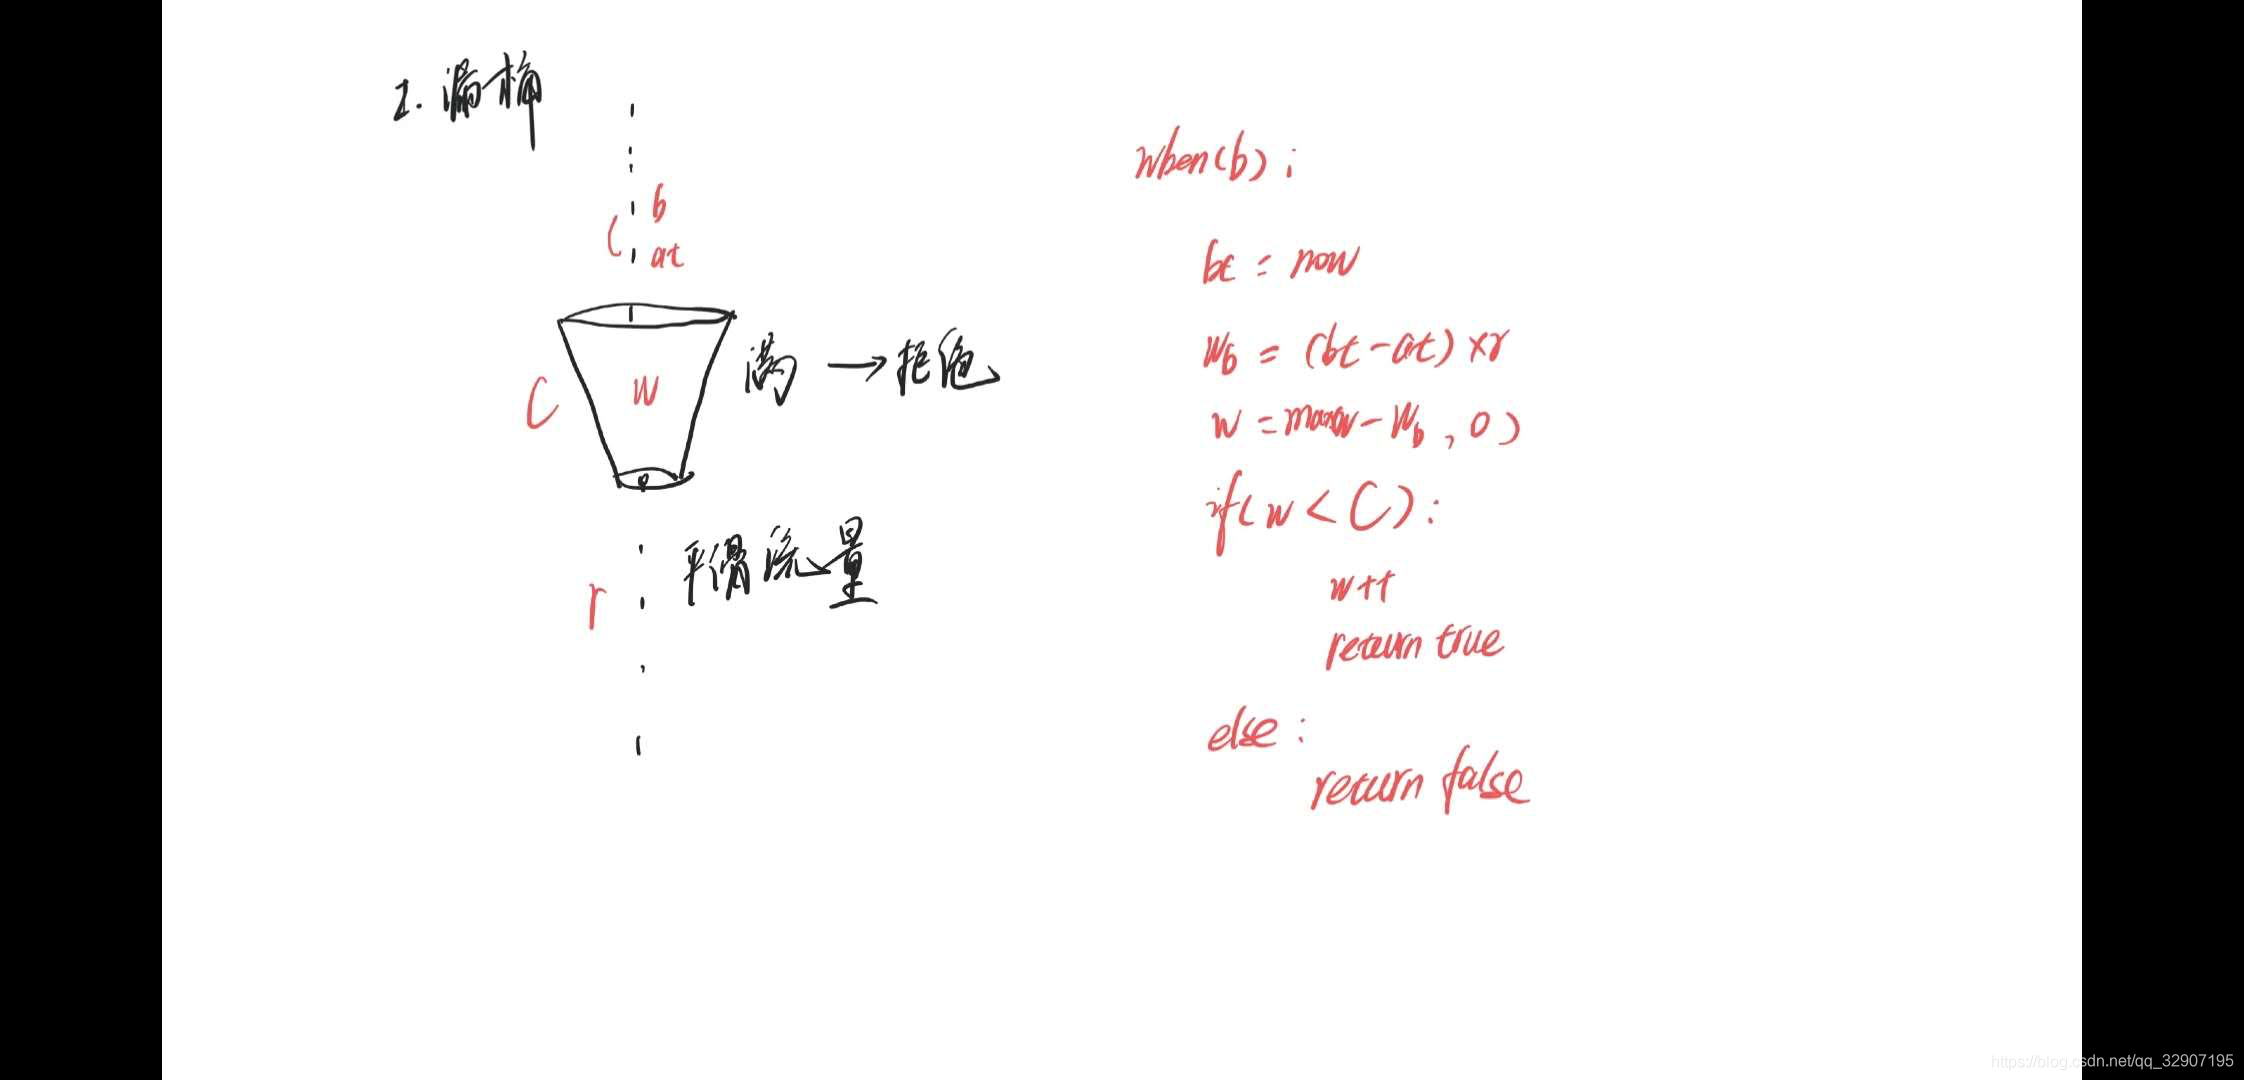 2. 漏桶
b
at
C
w
满 → 拒绝
平滑流量
r
when(b):
bt = now
Wb = (bt - at) × r
w = max(w - Wb, 0)
if( w < C ):
w++
return true
else :
return false
https://blog.csdn.net/qq_32907195